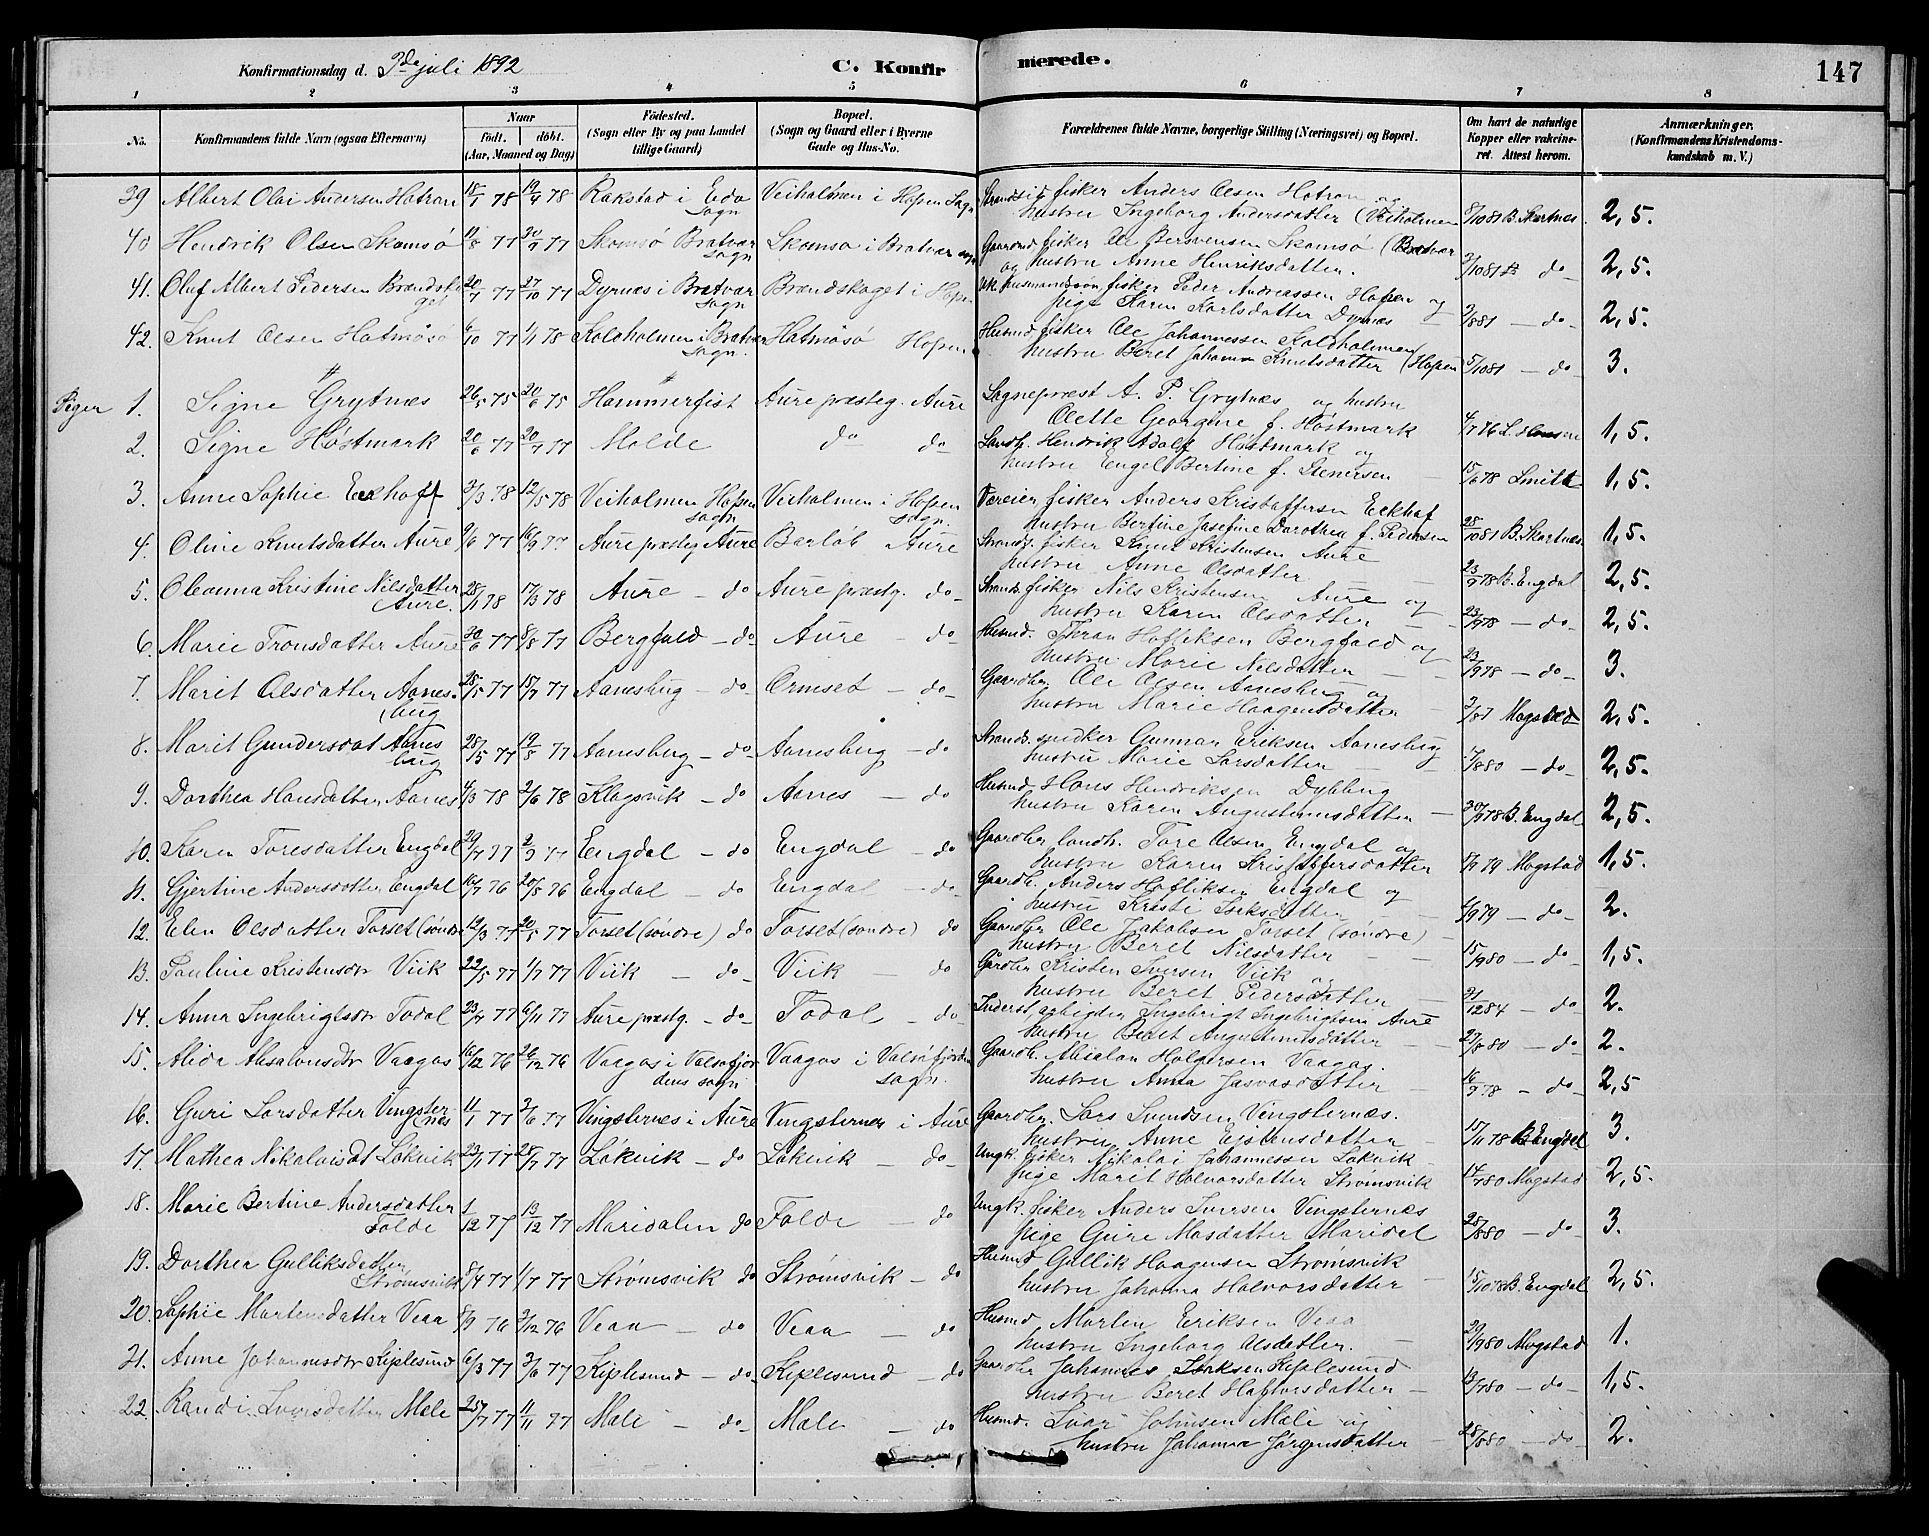 Konfirmationsdag d. 3de juli 1892
C. Konfir
merede.
147
1 2 3 4 5 6 7 8
No.
Konfirmandens fulde Navn (ogsaa Efternavn)
Naar
født. døbt.
(Aar, Maaned og Dag)
Fødested.
(Sogn eller By og paa Landet
tillige Gaard)
Bopæl.
(Sogn og Gaard eller i Byerne
Gade og Hus-No.
Forældrenes fulde Navne, borgerlige Stilling (Næringsvei) og Bopæl.
Om havt de naturlige
Kopper eller vakcine-
ret. Attest herom.
Anmærkninger.
(Konfirmandens Kristendoms-
kundskab m. V.)
39 Albert Olai Andersen Hatran 18/1 78 19/4 78 Rakstad i Edø Veiholmen i Hopen Sogn Strandsid. fisker Anders Olsen Hatran og
sogn hustru Ingeborg Andersdatter (Veiholmen 8/10 81 B. Skartnes 2,5.
40 Hendrik Olsen Skomsø 11/8 77 30/9 77 Skomsø Bratvær Skomsø i Bratvær sogn Gaardmd. fisker Ole Bersvensen Skomsø (Bratvær
sogn og hustru Anne Henriksdatter. 7/10 81 do 2,5.
41. Oluf Albert Pedersen Brandska 20/7 77 27/10 77 Dyrnæs i Bratvær Brandskaget i Hopen Uk. husmandssøn fisker Peder Andreassen Hopen og
get sogn pige Karen Karlsdatter Dyrnæs 2/8 81 - do - 2,5.
42. Knut Olsen Hatmøsø 6/10 77 1/1 78 Koldholmen i Bratvær Hatmøsø Hopen Husmd fisker Ole Johannessen Koldholmen
sogn. hustru Beret Johanna Knutsdatter (Hopen 5/10 81 - do - 3.
Piger 1. Signe Grytnæs 26/5 75 20/6 75 Hammerfest Aure præsteg. Aure Sognepræst A. P. Grytnæs og hustru
Olette Georgine f. Høstmark 4/7 76 L. Hansen 1,5.
2. Signe Høstmark 20/6 77 20/7 77 Molde do do Landh. Hendrik Adolf Høstmark og
hustru Engel Bertine f. Stenersen 15/6 78 Smitt 1,5.
3. Anne Sophie Eckhoff 3/3 78 12/5 78 Veiholmen Hopen Veiholmen i Hopen Væreier fisker Anders Kristoffersen Eckhof
sogn sogn. hustru Bertine Josefine Dorothea f. Pedersen 28/10 81 B. Skartnes. 1,5.
4. Oline Knutsdatter Aure 9/6 77 16/9 77 Aure præsteg Aure Barløb Aure Strands. fisker Knut Kristensen Aure
hustru Anne Olsdatter 23/9 78 B. Engdal 2,5.
5. Oleanna Kristine Nilsdatter 28/1 78 17/3 78 Aure - do Aure præstg. do - Strands. fisker Nils Kristensen Aure og
Aure. hustru Karen Olsdatter 23/9 78 - do - 2,5.
6. Marie Tronsdatter Aure 30/6 77 8/8 77 Bergfald - do Aure - do Husmd. Thran Hofliksen Bergfald og
hustru Marie Nilsdatter 23/9 78 - do - 3.
7. Marit Olsdatter Aanes- 28/5 77 15/7 77 Aanesbug - do - Ormset - do - Gaardbr. Ole Olsen Aanesbug og
bug hustru Marie Haagensdatter Mogstad 2,5.
8. Marit Gundersdat Aanes 28/5 77 19/8 77 Aanesbug - do - Aanesbug - do Strands. snidker Gunnar Eriksen Aanesbug
bug hustru Marie Larsdatter 1/8 80 - do - 2,5.
9. Dorthea Hansdatter Aanes 4/3 78 2/6 78 Klagsvik - do Aanes - do Husmd Hans Hendriksen Dybbug
hustru Karen Augustinusdatter 30/9 78 B. Engdal 2,5.
10. Karen Toresdatter Engdal 29/7 77 2/9 77 Engdal - do Engdal - do Gaardbr landh. Tore Olsen Engdal og
hustru Karen Kristoffersdatter 8/9 79 Mogstad 1,5.
11. Gjertine Andersdatter Engdal 16/4 76 20/5 76 Engdal - do Engdal - do. Gaardb. Anders Hofliksen Engdal og
hustru Kristi Isaksdatter 1/9 79 - do - 2.
12. Elen Olsdatter Torset (søndre 12/3 77 20/5 77 Torset (søndre) do Torset (søndre) do Gaardbr Ole Jakobsen Torset (søndre) -
hustru Beret Nilsdatter 15/9 80 - do - 1,5.
13. Pauline Kristensdtr Viik 22/5 77 1/7 77 Viik - do - Viik - do Gårdbr Kristen Iversen Viik og
hustru Beret Pedersdatter 31/12 84 - do 2.
14. Anna Ingebrigtsdtr Todal 23/9 77 6/11 77 Aure præstg. - do - Todal - do - Inderst, arbeider Ingebrigt Ingebrigtsen Aure
hustru Beret Augustinusdatter 27/8 80 - do - 2.
15. Alida Absalonsdtr Vaagos 16/12 76 26/12 76 Vaagos i Valsøfjor Vaagos i Valsøfjorden Gaardb. Absalon Holgersen Vaagos.
dens sogn sogn. hustru Anna Jasvasdatter 16/9 78 - do - 2,5
16. Guri Larsdatter Vingster 11/1 77 3/6 77 Vingsternes i Aure Vingsternes i Aure Gaardbr. Lars Svendsen Vingsternæs.
nes hustru Anne Eistensdatter 17/11 78 B Engdal 3.
17. Mathea Nikolaisdt Løkvik 23/1 77 28/7 77 Løkvik - do Løkvik - do - Ungk. fisker Nikolai Johannessen Løkvik -
pige Marit Halvorsdatter Strømsvik 14/7 80 Mogstad 2,5.
18. Marie Bertine Andersdatter 1/12 77 13/12 77 Maridalen do Folde - do Ungk. fisker Anders Iversen Vingsternæs
Folde pige Gure Masdatter Maridal 28/8 80 - do - 3.
19. Dorthea Gulliksdatter 8/4 77 1/7 77 Strømsvik do Strømsvik - do Husmd Gullik Haagensen Strømsvik
Strømsvik hustru Johanna Halvorsdatter 15/10 78 B. Engdal 2,5.
20. Sophie Martensdatter Veaa 8/9 76 3/12 76 Veaa - do Veaa - do Husmd Marten Eriksen Veaa
hustru Ingeborg Olsdatter. 29/9 80 Mogstad 1.
21. Anne Johannesdtr Kiplesund 6/3 77 3/6 77 Kiplesund - do - Kiplesund - do Gaardbr Johannes Isaksen Kiplesund
hustru Beret Haftorsdatter - 13/7 80 - do - 1,5.
22. Randi Ivarsdatter Mæle 25/7 77 11/11 77 Mæle - do - Mæle - do Husmd. Ivar Johnsen Mæle og
hustru Johanna Jørgensdatter 28/8 80 - do - 2.